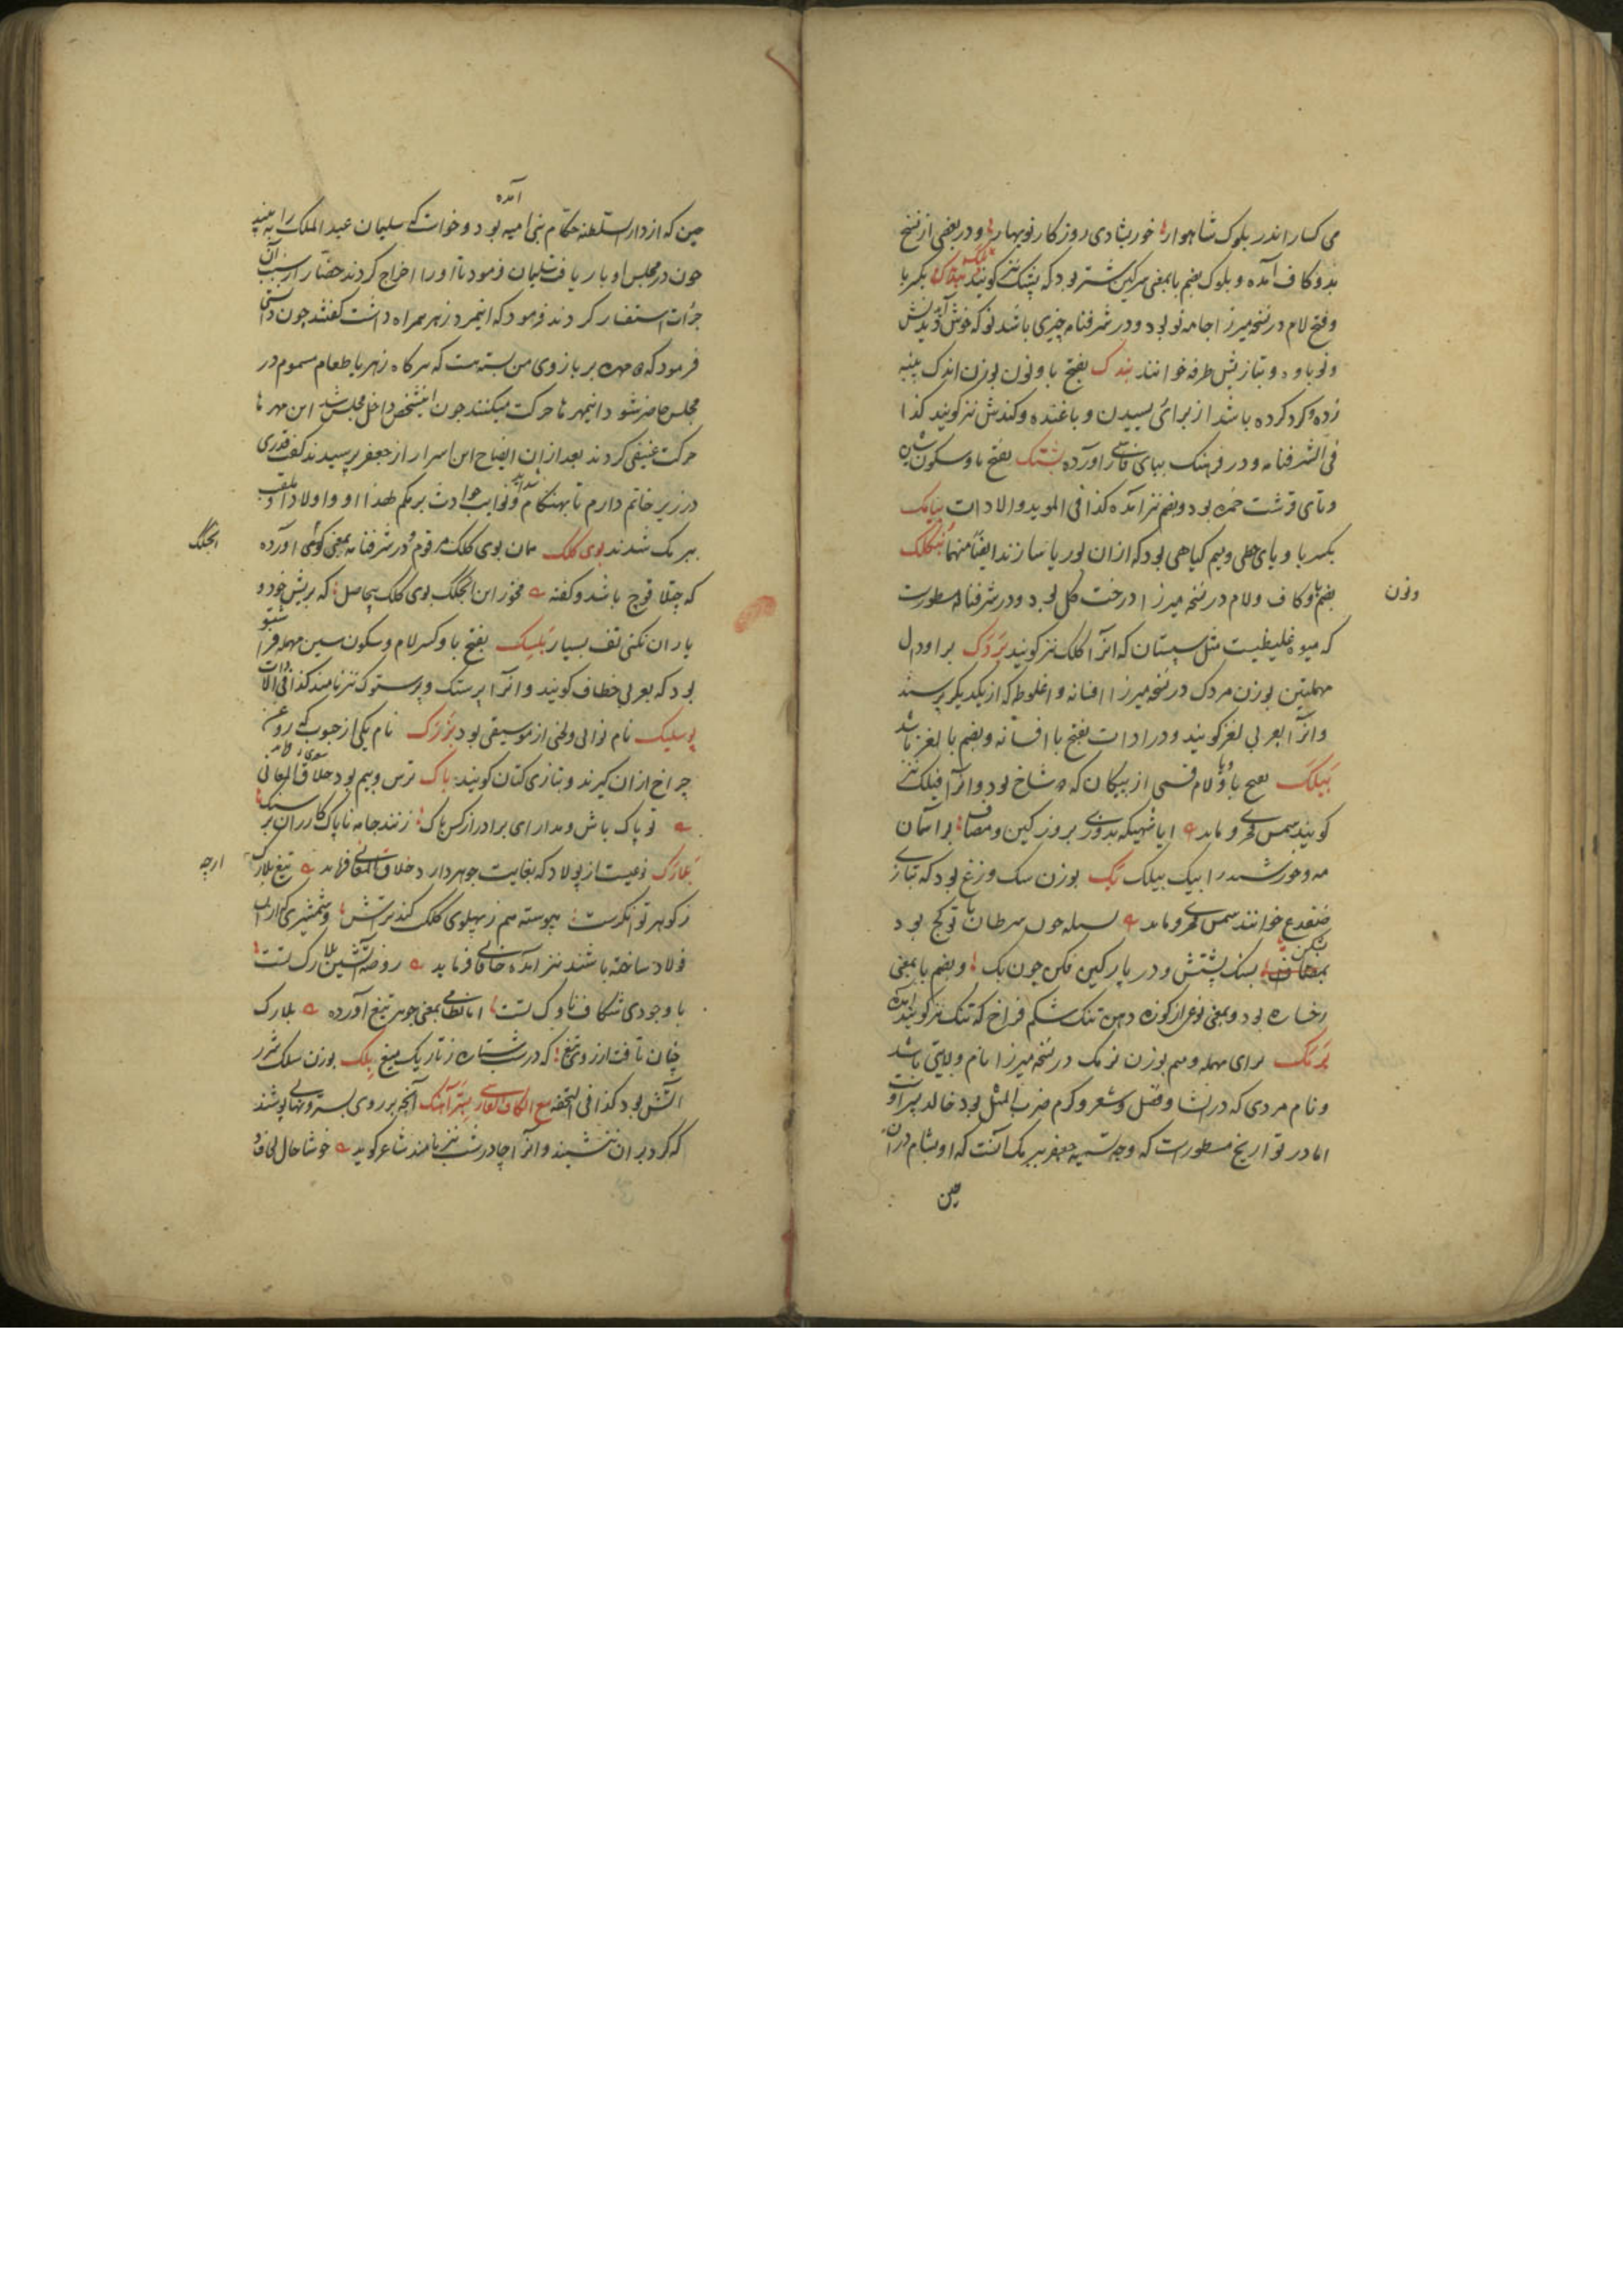 می کسار اندر بلوک شاهوار خور بشادی روزکار نوبهار و در بعضی از نسخ
بدو کاف آمده و بلوک بضم با بمعنی سرکین شتر بود که پشک نیز کویند بکسر با
و فتح لام در نسخه میرزا جامه نو بود و در شرفنامه چیزی باشد نو که خوش آید دیدنش
و نوباوه و بتازیش طرفه خوانند بندک بفتح با و نون بوزن اندک پنبه
زده و کرد کرده باشد از برای ریسیدن و باغنده و کندش نیز کویند کذا
فی الشرفنامه و در فرهنک ببای فارسی آورده بشتک بفتح با و سکون شین
و تای قرشت خمره بود و بضم نیز آمده کذا فی الموید و الادات بیامک
بکسر با و یای حطی و میم کیاهی بود که از آن بوریا سازند ایضا منهما بنکلک
بضم با و کاف و لام در نسخه میرزا درخت کل بود و در شرفنامه مسطورست
ونون
که میوه غلیظیست مثل سپستان که آنرا کلک نیز کویند بردک برا و دال
مهملتین بوزن مردک در نسخه میرزا افسانه و اغلوطه که از یکدیکر پرسند
و آنرا بعربی لغز کویند و در ادات بفتح با افسانه و بضم با لغز باشد
بیلک بفتح با و لام قسمی از پیکان که دو شاخ بود و آنرا فیلک نیز
کویند شمس فخری فرماید ایا شهیکه بدوزی بروز کین و مصاف بر آسمان
مه و خورشید را بیک بیلک بک بوزن سک وزغ بود که بتازی
ضفدع خوانند شمس فخری فرماید
بسنک پشتش و در پارکین فکن چون بک و بضم با بمعنی
رخساره بود و بمعنی نوعی از کوزه دهن تنک شکم فراخ که تنک نیز کویند آمده
برمک برای مهمله و میم بوزن نرمک در نسخه میرزا نام ولایتی باشد
و نام مردی که در انشا و فضل و شعر و کرم ضرب المثل بود خالد پسر اوست
اما در تواریخ مسطورست که وجه تسمیه جعفر ببرمک آنست که او بشام در آن
حین
حین که از دار السلطنه حکام بنی امیه بود آمده و خواست که سلیمان عبد الملک را ببیند
چون در مجلس او بار یافت سلیمان فرمود تا او را اخراج کردند حضار از سبب آن
جرات استفسار کردند فرمود که اینمرد زهر همراه داشت کفتند چون دانستی
فرمود که دو مهره بر بازوی من بسته است که هرکاه زهر یا طعام مسموم در
مجلس حاضر شود اینمهرها حرکت میکنند چون اینشخص داخل مجلس شد این مهرها
حرکت عنیفی کردند بعد از آن ایضاح این اسرار از جعفر پرسیدند کفت قدری
در زیر خاتم دارم تا بهنکام شداید و نوایب حوادث برمکم لهذا او و اولاد او ملقب
ببرمک شدند بوی کلک همان بوی کلک مرقوم و در شرفنامه بمعنی کوهی آورده
انجکک
که چتلاقوج باشد و کفته مخور این انجکک بوی کلک بیحاصل که بریش خود و
یاران نکنی تف بسیار بلسک بفتح با و کسر لام و سکون سین مهمله فراشتو
بود که بعربی خطاف کویند و آنرا پرستک و پرستوک نیز نامند کذا فی الادات
بوسلیک نام نوایی و لحنی از موسیقی بود بزرک نام یکی از حبوب که روغن
چراغ از آن کیرند و بتازی کتان کویند باک ترس و بیم بود خلاق المعانی
تو پاک باش و مدار ای برادر از کس باک زنند جامه ناپاک کازران بر سنک
بلارک نوعیست از پولاد که بغایت جوهردار خلاق المعانی فرماید تیغ بلارک
ارچه
ز کوهر توانکرست پیوسته هم ز پهلوی کلک کند ترش و شمشیری که از آن
فولاد ساخته باشند نیز آمده خاقانی فرماید روضه آتشین بلارک تست
باد جودی شکاف ناوک تست اما نظامی بمعنی جوهر تیغ آورده بلارک
چنان تافت از روی تیغ که در شب ستاره ز تاریک میغ بلک بوزن سلک شرر
آتش بود کذا فی التحفه مع الکاف الفارسی بسترآهنک آنچه بر روی بستر و نهالی پوشند
که کرد بر آن ننشیند و آنرا چادر شب نیز نامند شاعر کوید خوشا حال